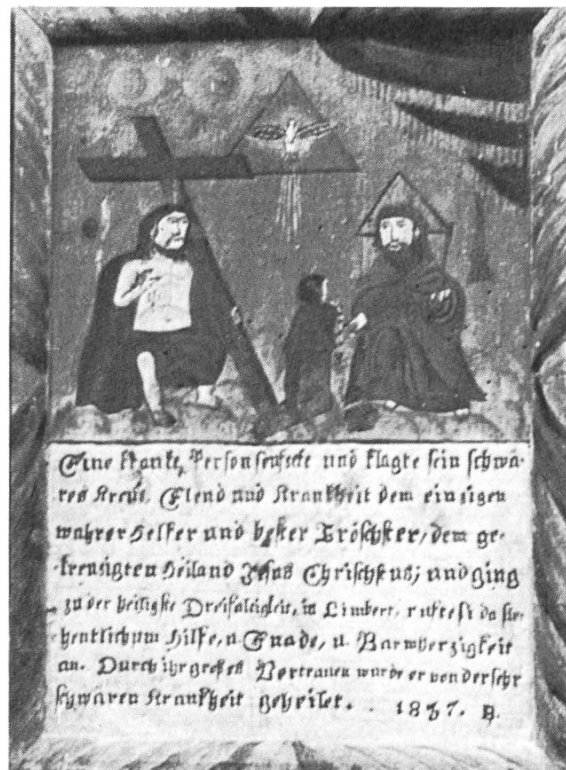 Eine kranke, Person seufzte und klagte sein schwä-
res Kreuz, Elend und Krankheit dem einzigen
wahrer Helfer und bester Tröschster, dem ge-
kreuzigten Heiland Jesus Chrischtus; und ging
zu der heiligste Dreifaltigkeit, in Limbert, rufte si da fle-
hentlich um Hilfe, u. Gnade, u. Barmherzigkeit
an. Durch ihr großes Vertrauen wurde er von der sehr
schwären Krankheit geheilet. . 1837. B.